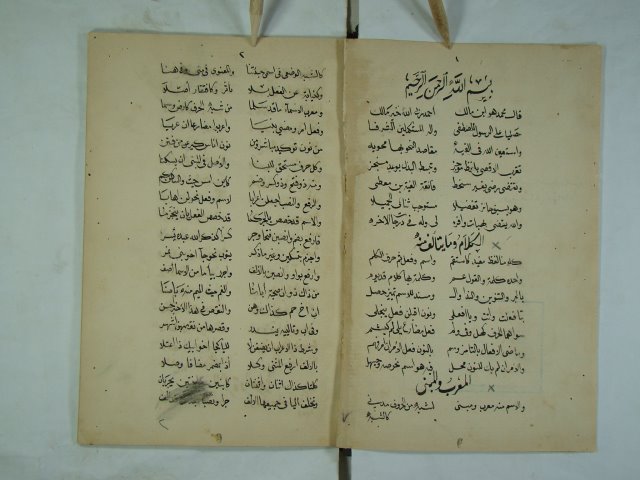 ١
بسم الله الرحمن الرحيم
قال محمد هو ابن مالك احمد ربي الله خير مالك
مصليا على الرسول المصطفى واله المستكملين الشرفا
واستعين الله في الفيه مقاصد النحو بها محويه
تقرب الاقصى بلفظ موجز وتبسط البذل بوعد منجز
وتقتضي رضى بغير سخط فائقة الفية ابن معطي
وهو بسبق حايز تفضيلا مستوجب ثنائي الجميلا
والله يقضي بهبات وافره لي وله في درجات الاخره
الكلام وما يتالف منه
كلامنا لفظ مفيد كاستقم واسم وفعل ثم حرف الكلم
واحده كلمة والقول عم وكلمة بها كلام قد يوم
بالجر والتنوين والندا وال ومسند للاسم تمييز حصل
بتا فعلت واتت ويا افعلي ونون اقبلن فعل ينجلي
سواهما الحرف كهل وفي ولم فعل مضارع يلي لم كيشم
وماضي الافعال بالتا مز وسم بالنون فعل الامر ان امر فهم
والامر ان لم يك للنون محل فيه هو اسم نحو صه وحيهل
المعرب والمبني
والاسم منه معرب ومبني لشبه من الحروف مدني
كالشبه
٢
كالشبه الوضعي في اسمي جئتنا والمعنوي في متى وفي هنا
وكنيابة عن الفعل بلا تاثر وكافتقار اصلا
ومعرب الاسماء ما قد سلما من شبه الحرف كارض وسما
وفعل امر ومضي بنيا واعربوا مضارعا ان عريا
من نون توكيد مباشر ومن نون اناث كيرعن من فتن
وكل حرف مستحق للبنا والاصل في المبني ان يسكنا
ومنه ذو فتح وذو كسر وضم كاين امس حيث والساكن كم
والرفع والنصب اجعلن اعرابا لاسم وفعل نحو لن اهابا
والاسم قد خصص بالجر كما قد خصص الفعل بان ينجزما
فارفع بضم وانصبن فتحا وجر كسرا كذكر الله عبده يسر
واجزم بتسكين وغير ما ذكر ينوب نحو جا اخو بني نمر
وارفع بواو وانصبن بالالف واجرر بيا ما من الاسما اصف
من ذاك ذو ان صحبة ابانا والفم حيث الميم منه بانا
اب اخ حم كذاك وهن والنقص في هذا الاخير احسن
وفي اب وتالييه يندر وقصرها من نقصهن اشهر
وشرط ذا الاعراب ان يضفن لا لليا كجا اخو ابيك ذا اعتلا
بالالف ارفع المثنى وكلا اذا بمضمر مضافا وصلا
كلتا كذاك اثنان واثنتان كابنين وابنتين يجريان
وتخلف اليا في جميعها الالف جرا ونصبا